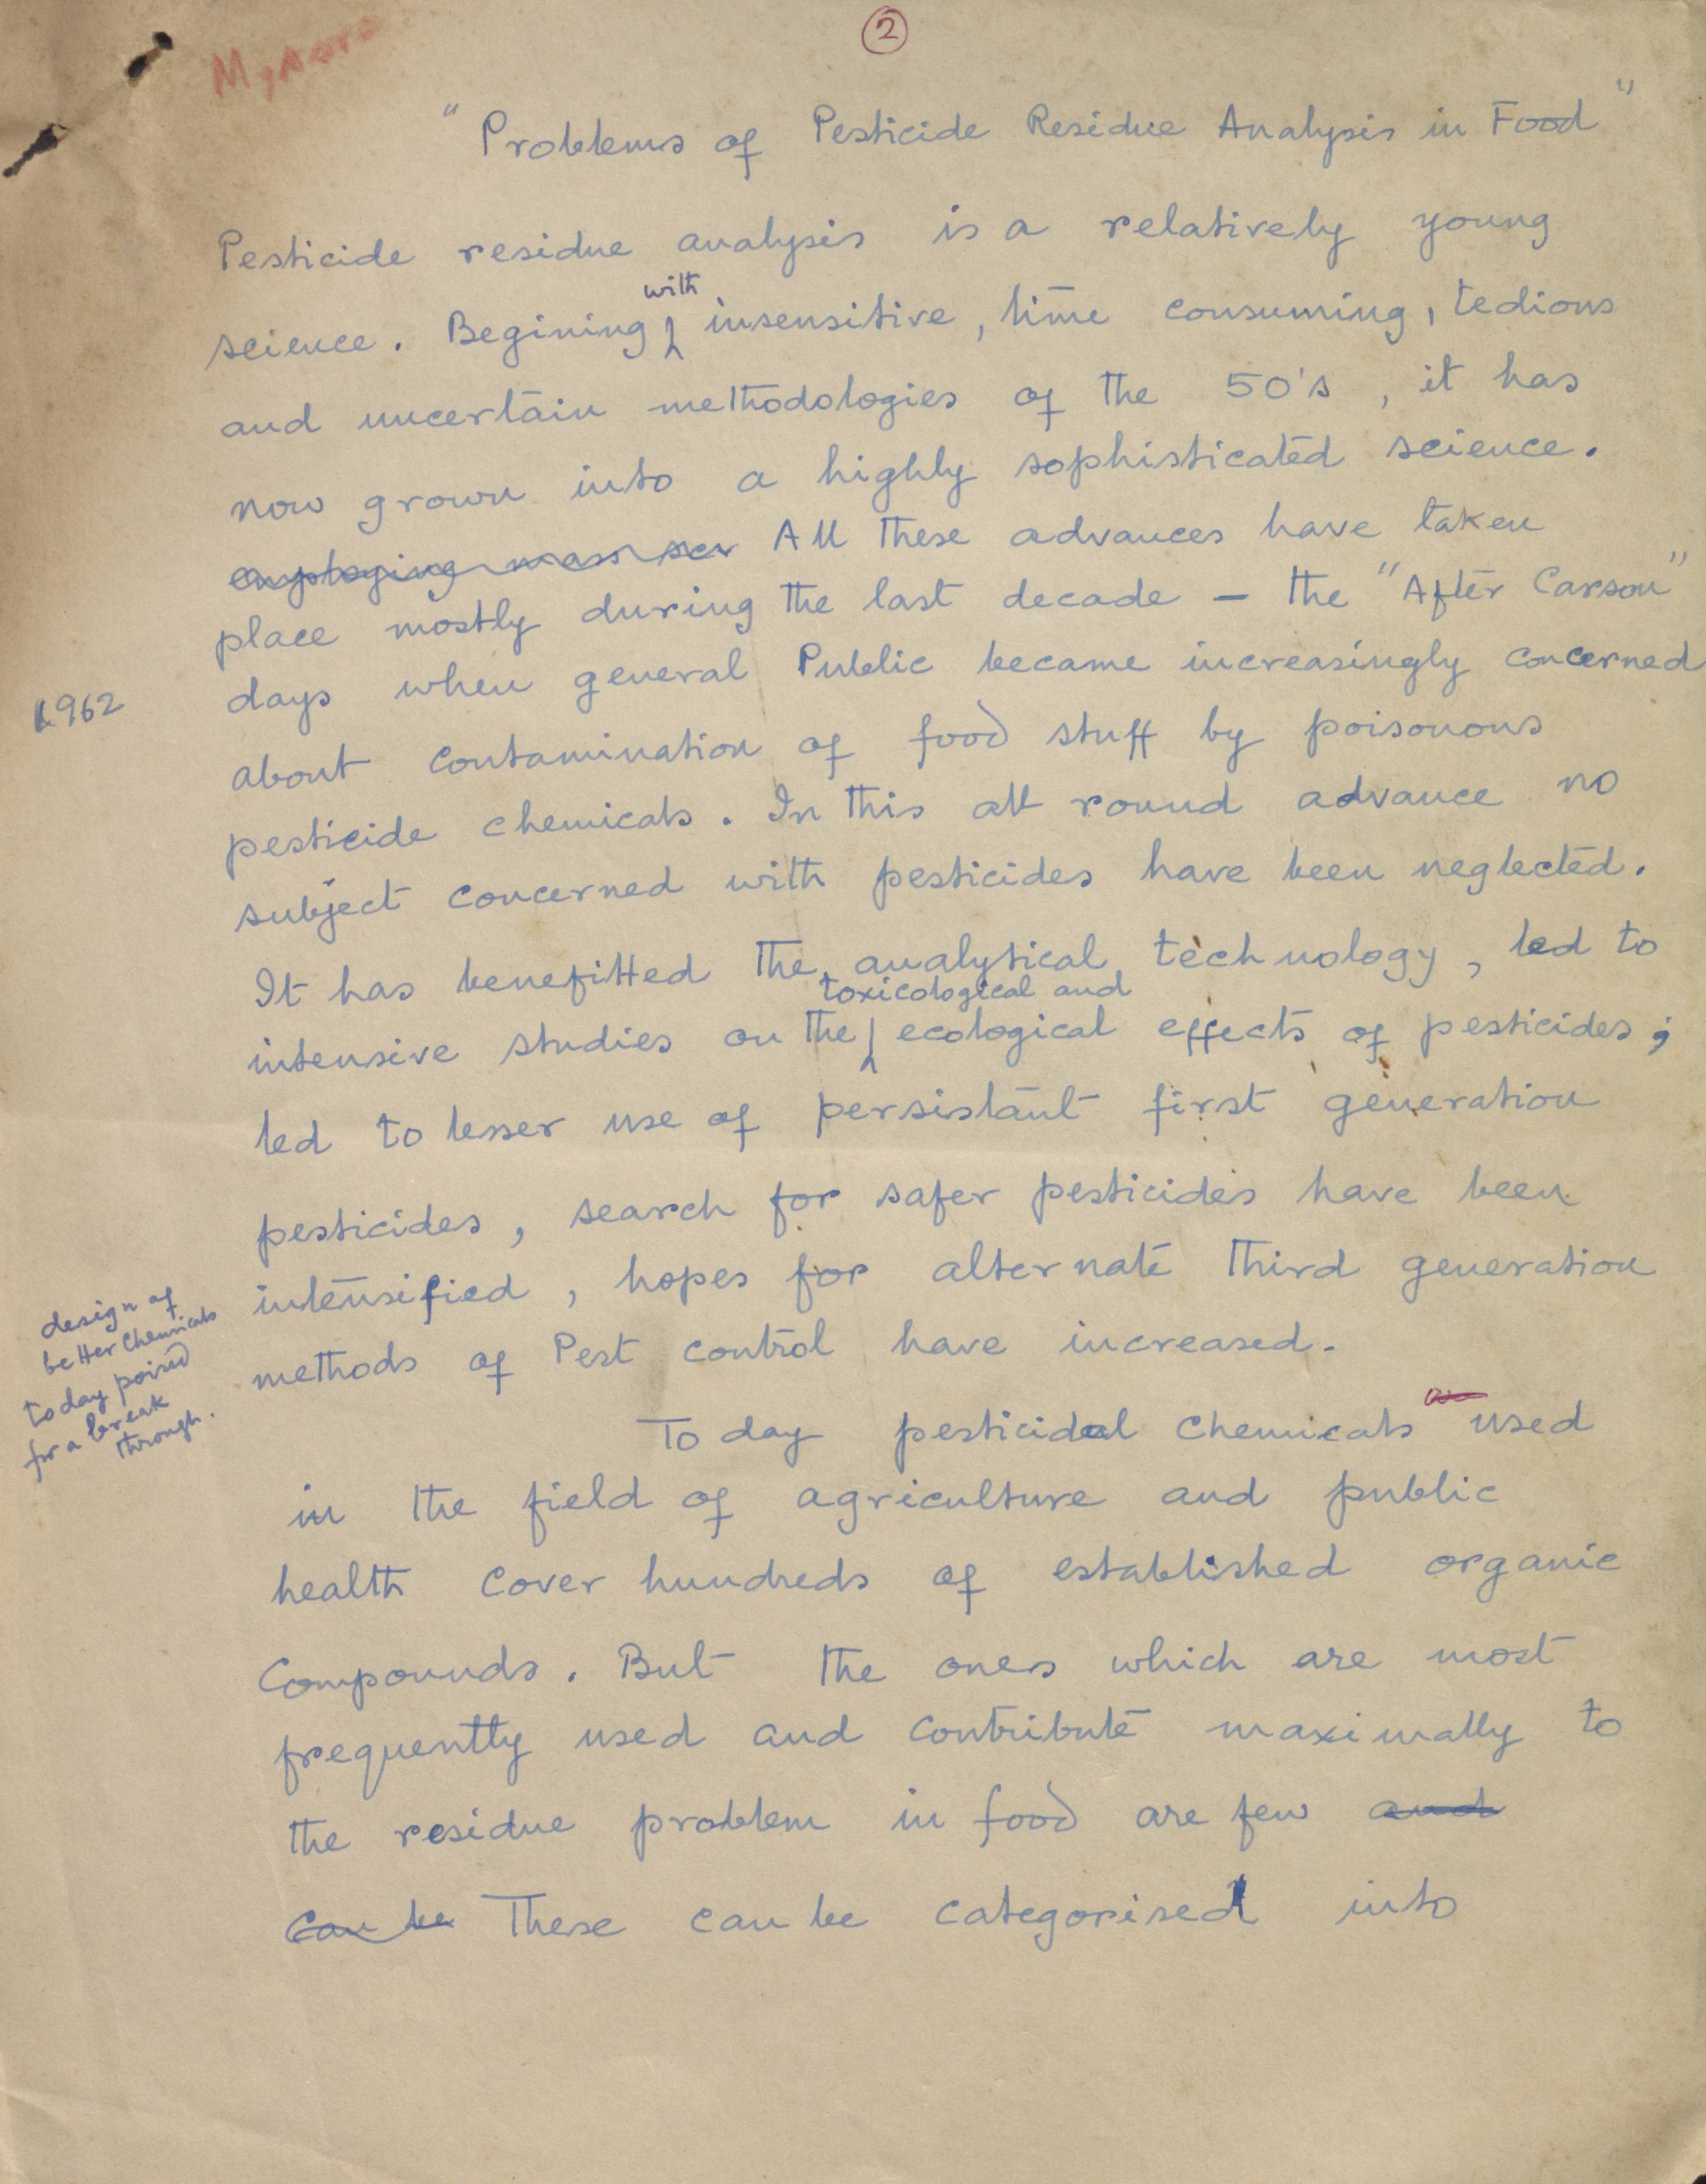 2
Mysore
"Problems of Pesticide Residue Analysis in Food"
Pesticide residue analysis is a relatively young
with
science. Begining insensitive, time consuming, tedious
and uncertain methodologies of the 50's, it has
now grown into a highly sophisticated science.
employing mass All these advances have taken
place mostly during the last decade – the "After Carson"
1962
days when general Public became increasingly concerned
about contamination of food stuff by poisonous
pesticide chemicals. In this all round advance no
subject concerned with pesticides have been neglected.
It has benefitted the analytical technology, led to
toxicological and
intensive studies on the ecological effects of pesticides;
led to lesser use of persistant first generation
pesticides, search for safer pesticides have been
intensified, hopes for alternate third generation
methods of Pest control have increased.
design of
better chemicals
today poised
for a break
through.
To day pesticidal chemicals used
in the field of agriculture and public
health cover hundreds of established organic
compounds. But the ones which are most
frequently used and contribute maximally to
the residue problem in food are few and
can be These can be categorised into